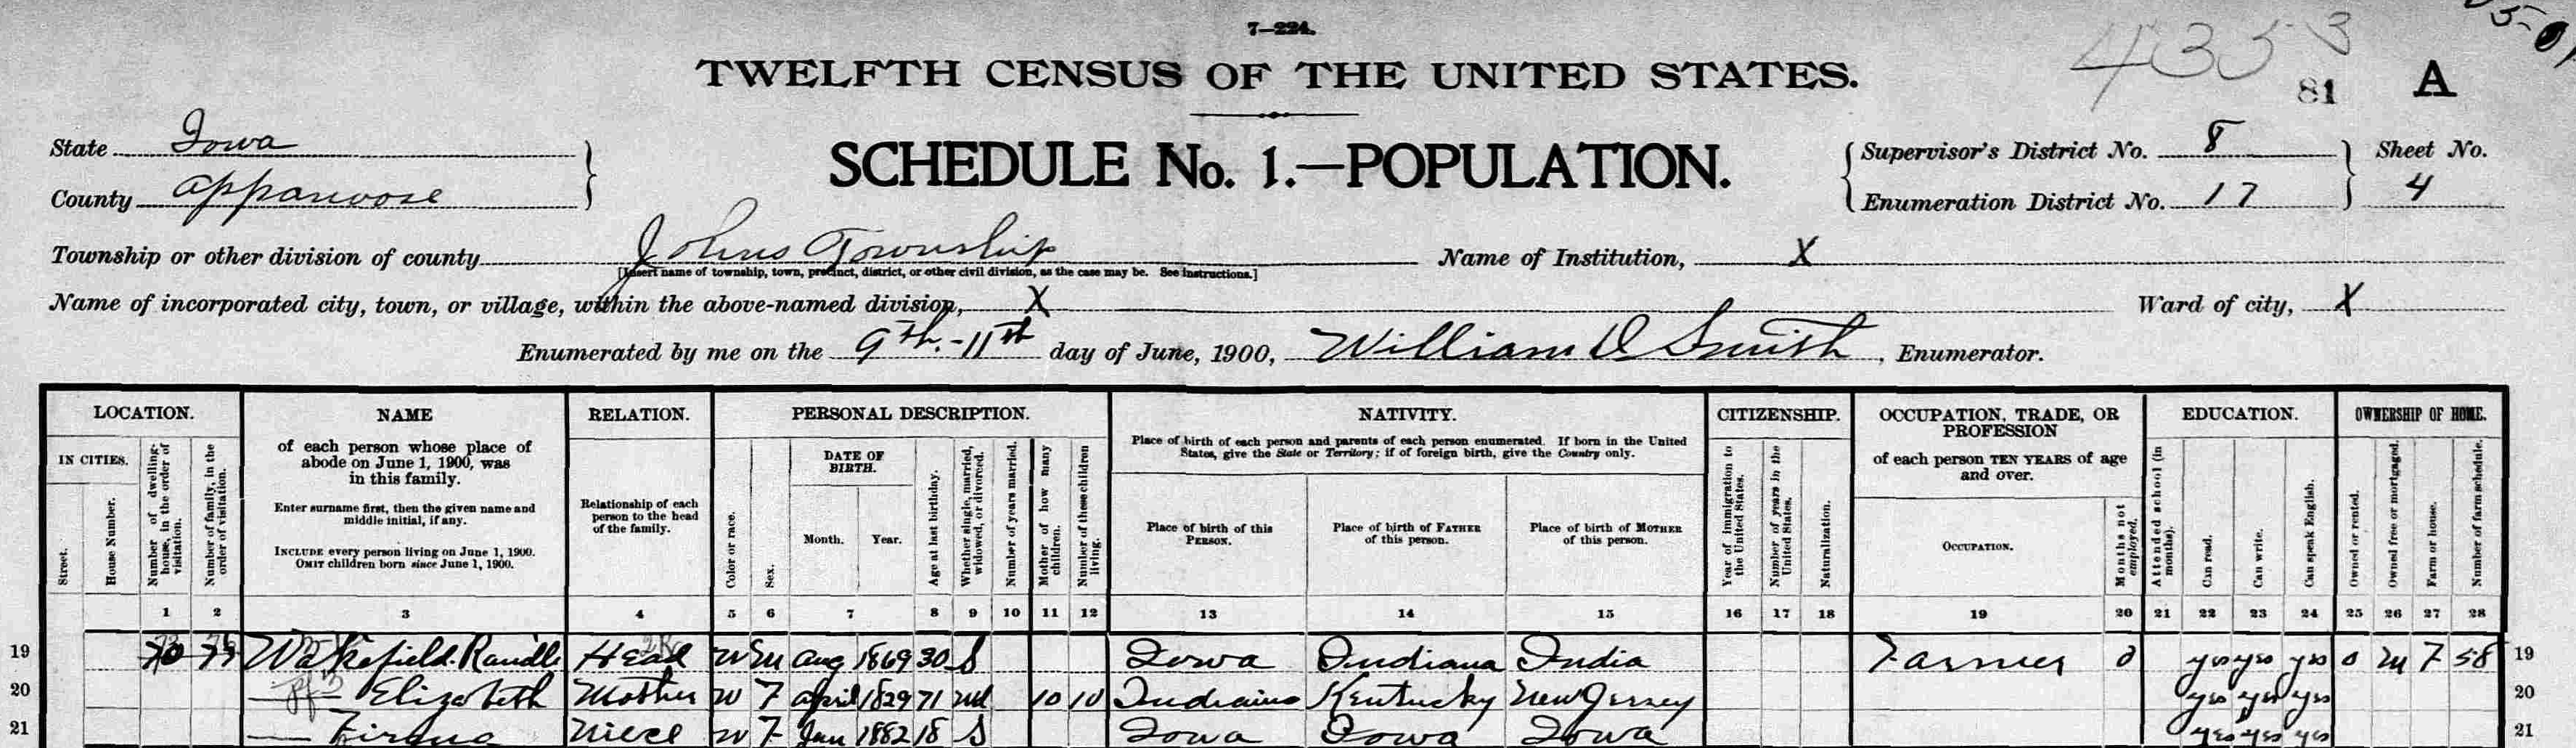 7—224.
4353
TWELFTH CENSUS OF THE UNITED STATES.
81 A
State Iowa
County Appanoose
SCHEDULE No. 1.—POPULATION.
Supervisor's District No. 8
Enumeration District No. 17
Sheet No.
4
Township or other division of county Johns Township
[Insert name of township, town, precinct, district, or other civil division, as the case may be. See instructions.]
Name of Institution, X
Name of incorporated city, town, or village, within the above-named division, X
Ward of city, X
Enumerated by me on the 9th.-11th day of June, 1900, William D Smith, Enumerator.
LOCATION.
IN CITIES.
Street.
House Number.
Number of dwelling-house, in the order of visitation.
Number of family, in the order of visitation.
NAME
of each person whose place of
abode on June 1, 1900, was
in this family.
Enter surname first, then the given name and
middle initial, if any.
INCLUDE every person living on June 1, 1900.
OMIT children born since June 1, 1900.
RELATION.
Relationship of each
person to the head
of the family.
PERSONAL DESCRIPTION.
Color or race.
Sex.
DATE OF
BIRTH.
Month. Year.
Age at last birthday.
Whether single, married, widowed, or divorced.
Number of years married.
Mother of how many children.
Number of these children living.
NATIVITY.
Place of birth of each person and parents of each person enumerated. If born in the United
States, give the State or Territory; if of foreign birth, give the Country only.
Place of birth of this
PERSON.
Place of birth of FATHER
of this person.
Place of birth of MOTHER
of this person.
CITIZENSHIP.
Year of immigration to the United States.
Number of years in the United States.
Naturalization.
OCCUPATION, TRADE, OR
PROFESSION
of each person TEN YEARS of age
and over.
OCCUPATION.
Months not employed.
EDUCATION.
Attended school (in months).
Can read.
Can write.
Can speak English.
OWNERSHIP OF HOME.
Owned or rented.
Owned free or mortgaged.
Farm or house.
Number of farm schedule.
1 2 3 4 5 6 7 8 9 10 11 12 13 14 15 16 17 18 19 20 21 22 23 24 25 26 27 28
19 Wakefield. Randle Head W M Aug 1869 30 S Iowa Indiana India Farmer 0 yes yes yes O M F 58 19
20 — Elizabeth Mother W F April 1829 71 Wd 10 10 Indiana Kentucky New Jersey yes yes yes 20
21 — Niece W F Jan 1882 18 S Iowa Iowa Iowa yes yes yes 21